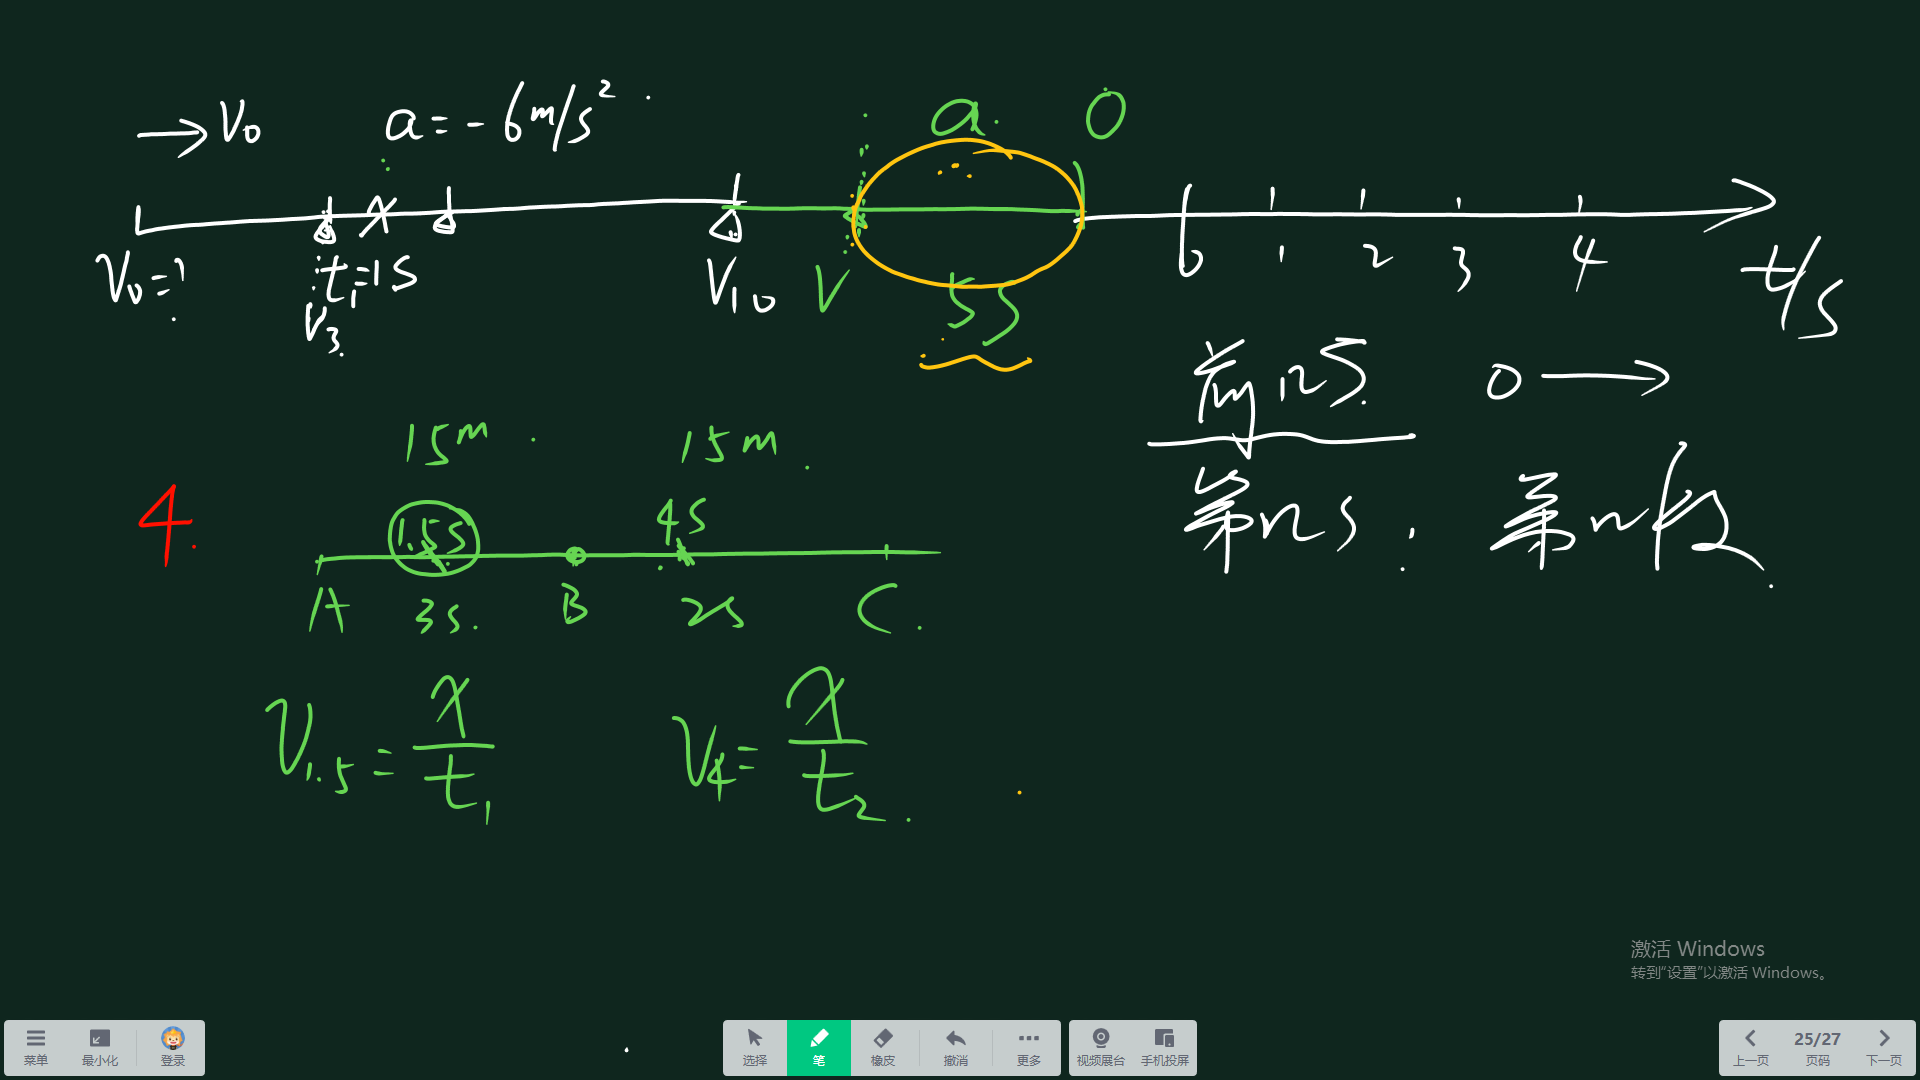 → V₀ a = -6m/s² a 0
V₀=? t₁=1s V₁₀ V 5s 0 1 2 3 4 t/s
V₃
前ns 0 →
15m 15m
第ns 第n段
4. 1.5s 4s
A 3s B 2s C
V₁.₅ = x/t₁ V₄ = x/t₂
激活 Windows
转到“设置”以激活 Windows。
菜单 最小化 登录 选择 笔 橡皮 撤消 更多 视频展台 手机投屏 上一页 25/27 页码 下一页